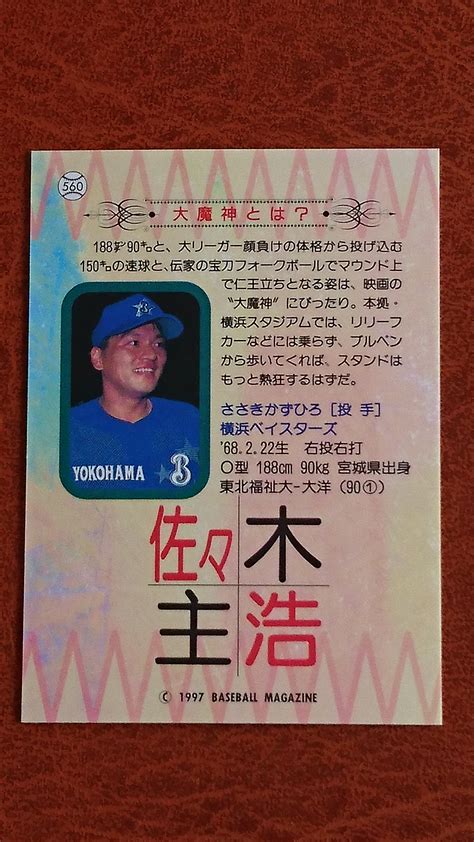 560
大魔神とは？
188㌢90㌔と、大リーガー顔負けの体格から投げ込む
150㌔の速球と、伝家の宝刀フォークボールでマウンド上
で仁王立ちとなる姿は、映画の
“大魔神”にぴったり。本拠・
横浜スタジアムでは、リリーフ
カーなどには乗らず、ブルペン
から歩いてくれば、スタンドは
もっと熱狂するはずだ。
ささきかずひろ［投 手］
横浜ベイスターズ
'68.2.22生 右投右打
O型 188cm 90kg 宮城県出身
東北福祉大−大洋（90①）
YOKOHAMA B
佐々木
主浩
© 1997 BASEBALL MAGAZINE